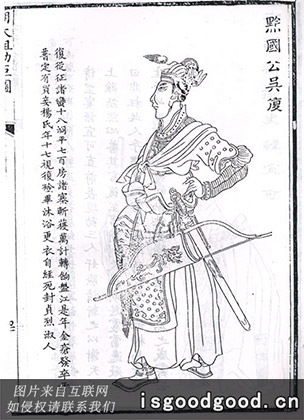 黔國公吳復
復從征諸蠻十八洞平七百房諸寨斬獲萬計轉餉盤江是年金瘡發卒于
普定有買妾楊氏年十七視復殮畢沐浴更衣自經死封貞烈淑人
图片来自互联网
如侵权请联系我们
isgoodgood.com